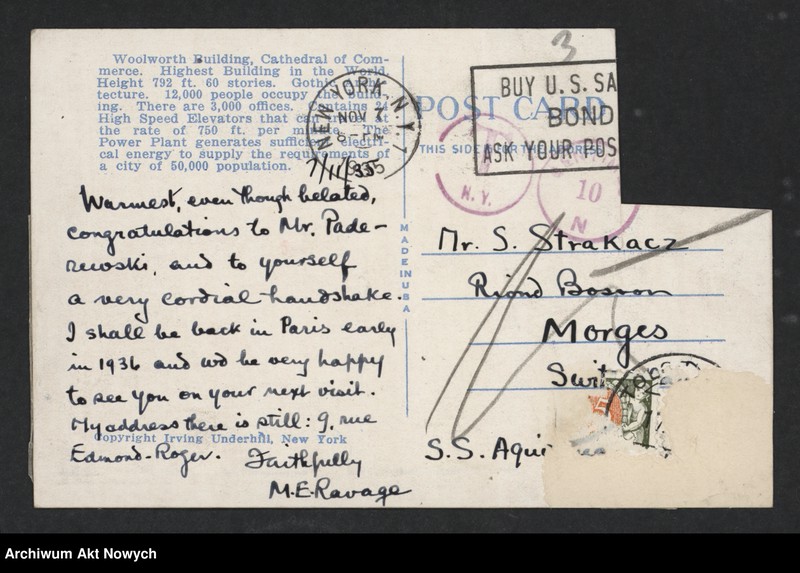 3
Woolworth Building, Cathedral of Com-
merce. Highest Building in the World.
Height 792 ft. 60 stories. Gothic Archi-
tecture. 12,000 people occupy the build-
ing. There are 3,000 offices. Contains 24
High Speed Elevators that can run at
the rate of 750 ft. per minute. The
Power Plant generates sufficient electri-
cal energy to supply the requirements of
a city of 50,000 population.
NEW YORK, N.Y.
NOV 7
8-PM
1935
7/11/35
POST CARD
THIS SIDE IS FOR THE ADDRESS
BUY U.S. SA
BOND
ASK YOUR POS
N.Y.
10
N
Warmest, even though belated,
congratulations to Mr. Pade-
rewski, and to yourself
a very cordial handshake.
I shall be back in Paris early
in 1936 and wd be very happy
to see you on your next visit.
My address there is still: 9, rue
Copyright Irving Underhill, New York
Edmond-Roger. Faithfully
M.E.Ravage
MADE IN U S A
Mr. S. Strakacz
Riond Bosson
Morges
Swit
S.S. Aqui
Archiwum Akt Nowych